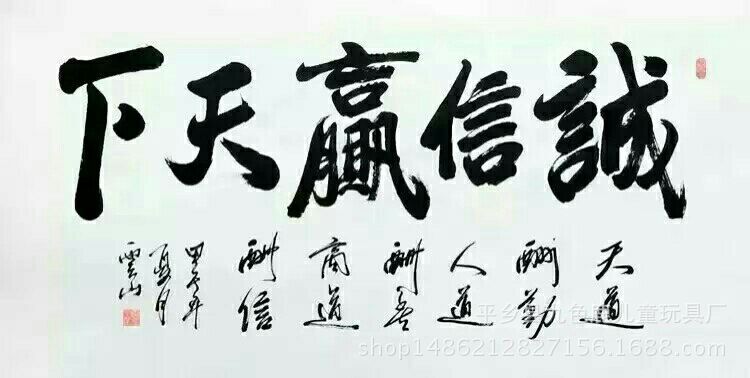 誠信贏天下
天道
酬勤
人道
酬善
商道
酬信
甲午年
夏月
雲山
平乡县九色鹿儿童玩具厂
shop1486212827156.1688.com